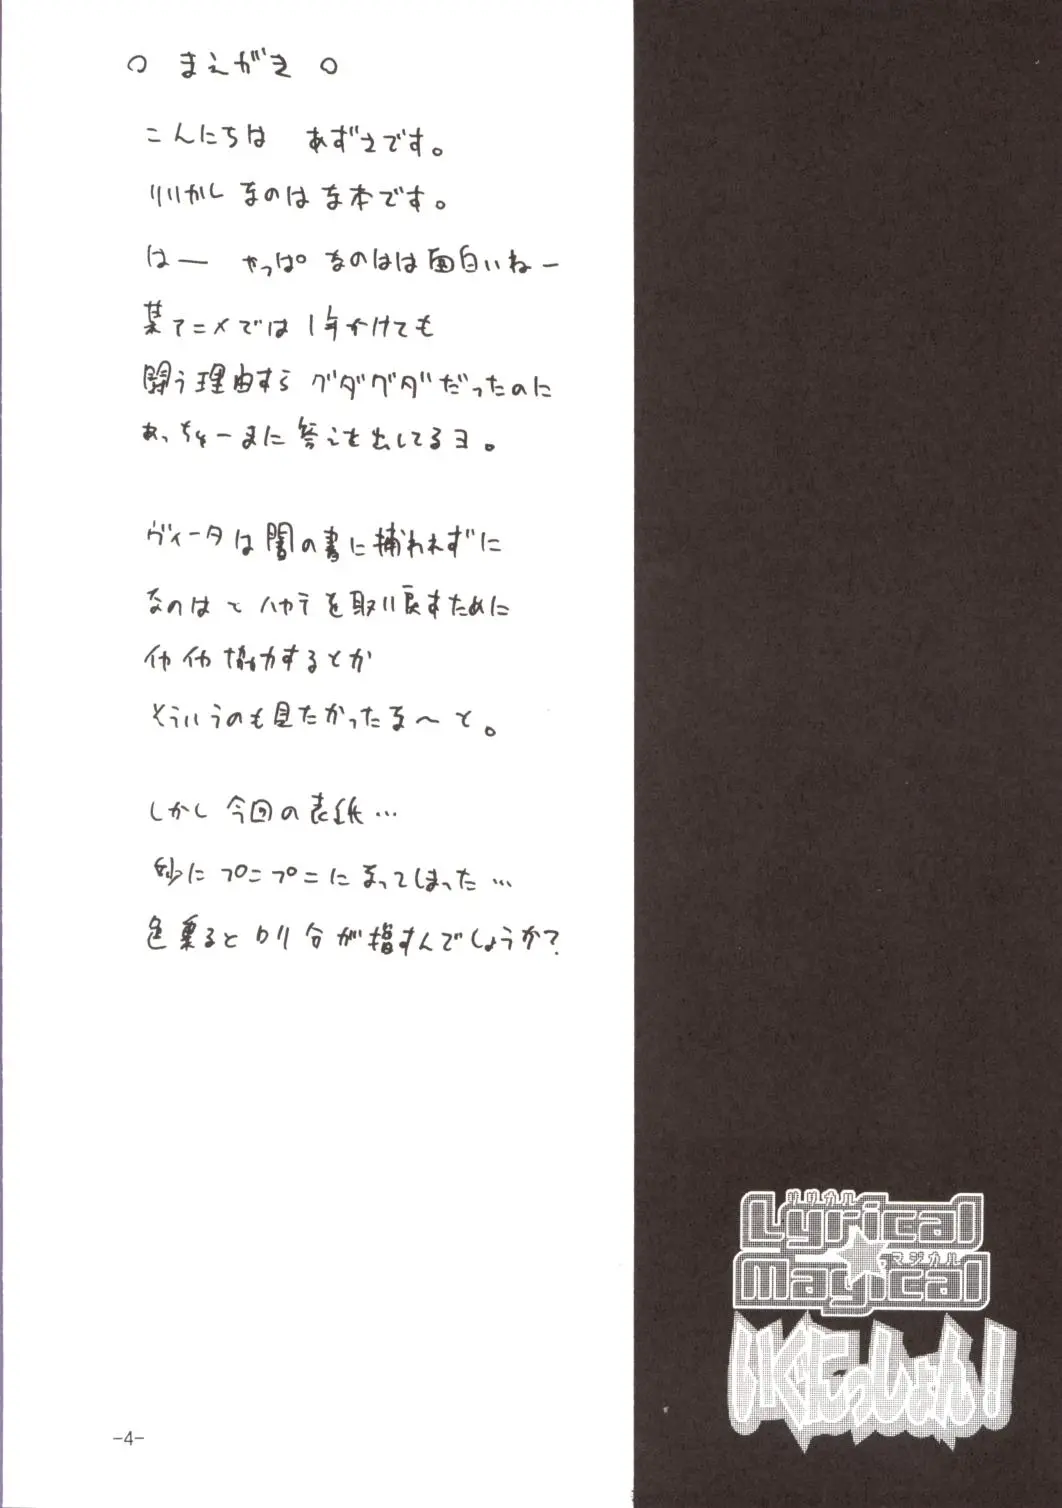 ○ まえがき ○
こんにちは あずさです。
リリカル なのは な本です。
はー やっぱ なのはは面白いねー
某アニメでは 1年かけても
闘う理由すら グダグダだったのに
あっちゅーまに 答えを出してるヨ。
ヴィータは 闇の書に捕われずに
なのはと ハヤテを取り戻すために
イヤイヤ協力するとか
そういうのも見たかったな〜と。
しかし 今回の表紙…
妙に プニプニに なってしまった…
色塗ると ロリ分が 増すんでしょうか?
リリカル
Lyrical
マジカル
Magical
-4-